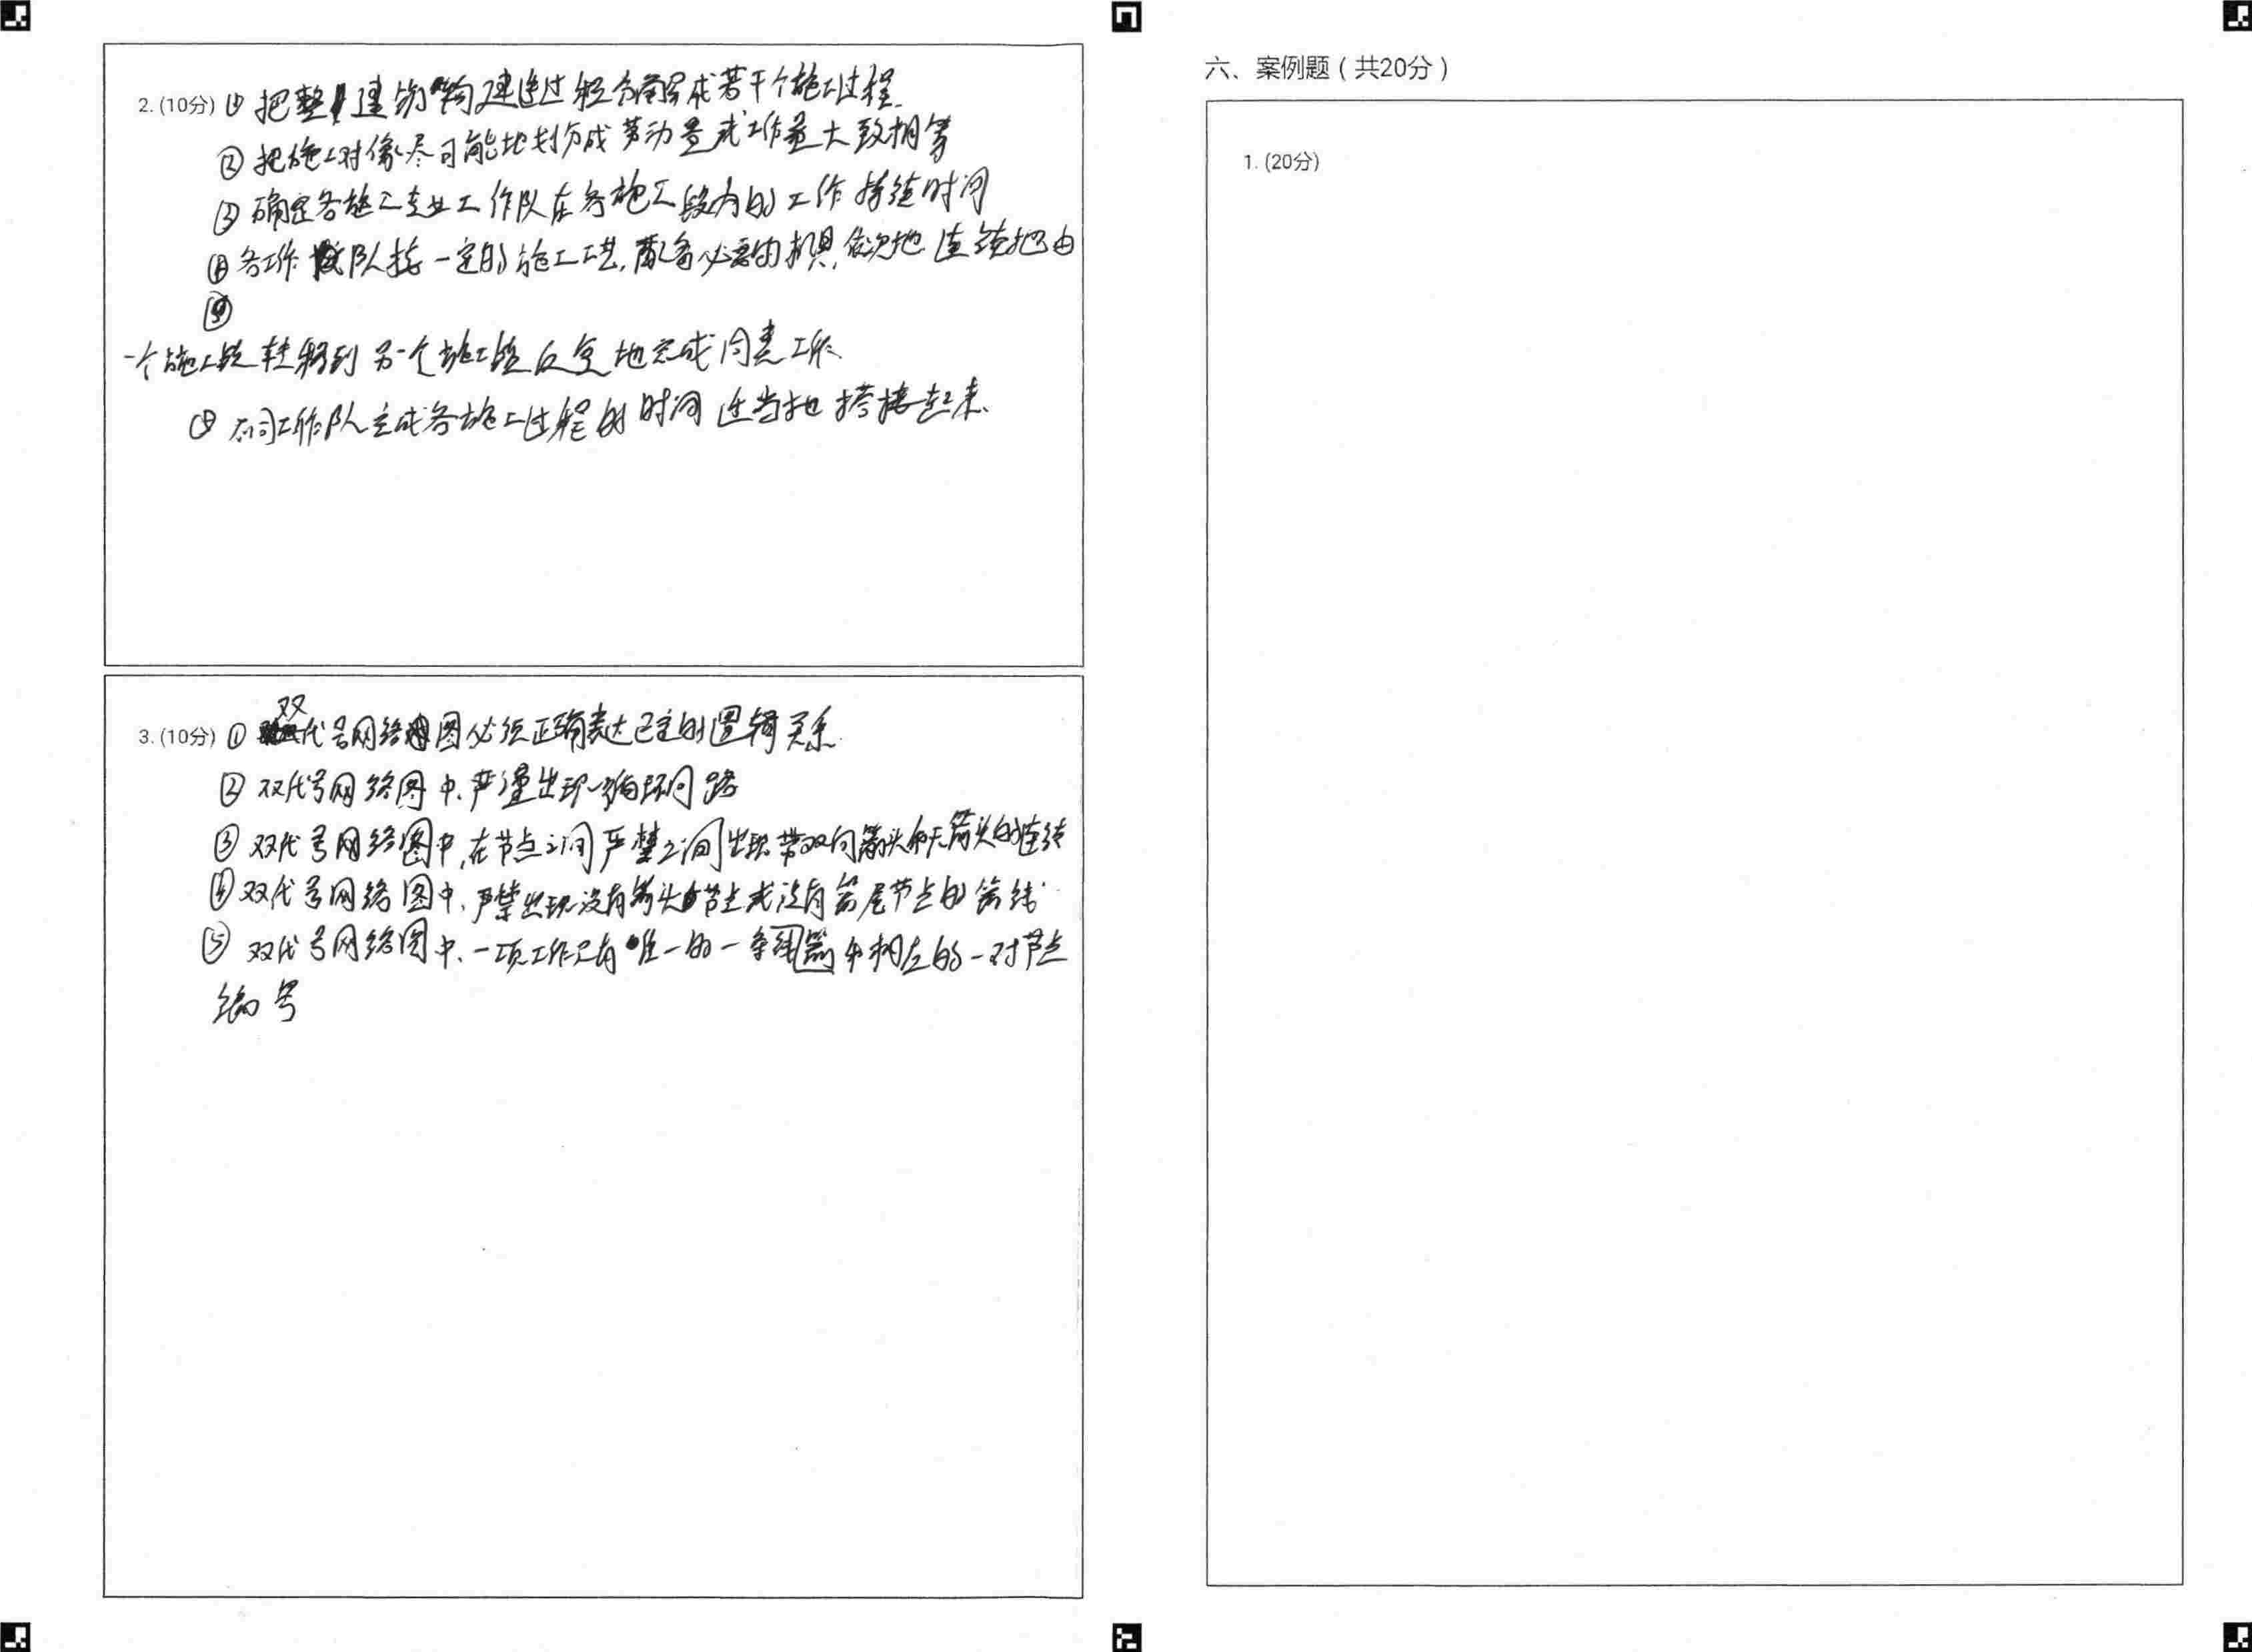 2. (10分) ① 把整个建筑物建造过程分解成若干个施工过程.
② 把施工对像尽可能地划分成劳动量或工作量大致相等
③ 确定各施工专业工作队在各施工段内的工作持续时间
④ 各工作队按一定的施工工艺,配备必要的机具,依次地连续地由
一个施工段转移到另一个施工段反复地完成同类工作
⑤ 不同工作队完成各施工过程的时间适当地搭接起来.
3. (10分) ① 双代号网络图必须正确表达已定的逻辑关系.
② 双代号网络图中,严谨出现循环回路
③ 双代号网络图中,在节点之间严禁之间出现带双向箭头和无箭头的连线
④ 双代号网络图中,严禁出现没有箭头节点或没有箭尾节点的箭线.
⑤ 双代号网络图中,一项工作只有唯一的一条箭和相应的一对节点
编号
六、案例题(共20分)
1. (20分)